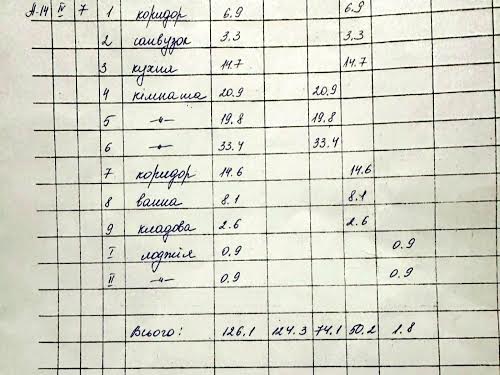 А-14 IV 7 1 коридор 6.9 6.9
2 санвузол 3.3 3.3
3 кухня 14.7 14.7
4 кімната 20.9 20.9
5 -"- 19.8 19.8
6 -"- 33.4 33.4
7 коридор 14.6 14.6
8 ванна 8.1 8.1
9 кладова 2.6 2.6
I лоджія 0.9 0.9
II -"- 0.9 0.9
Всього: 126.1 124.3 74.1 50.2 1.8